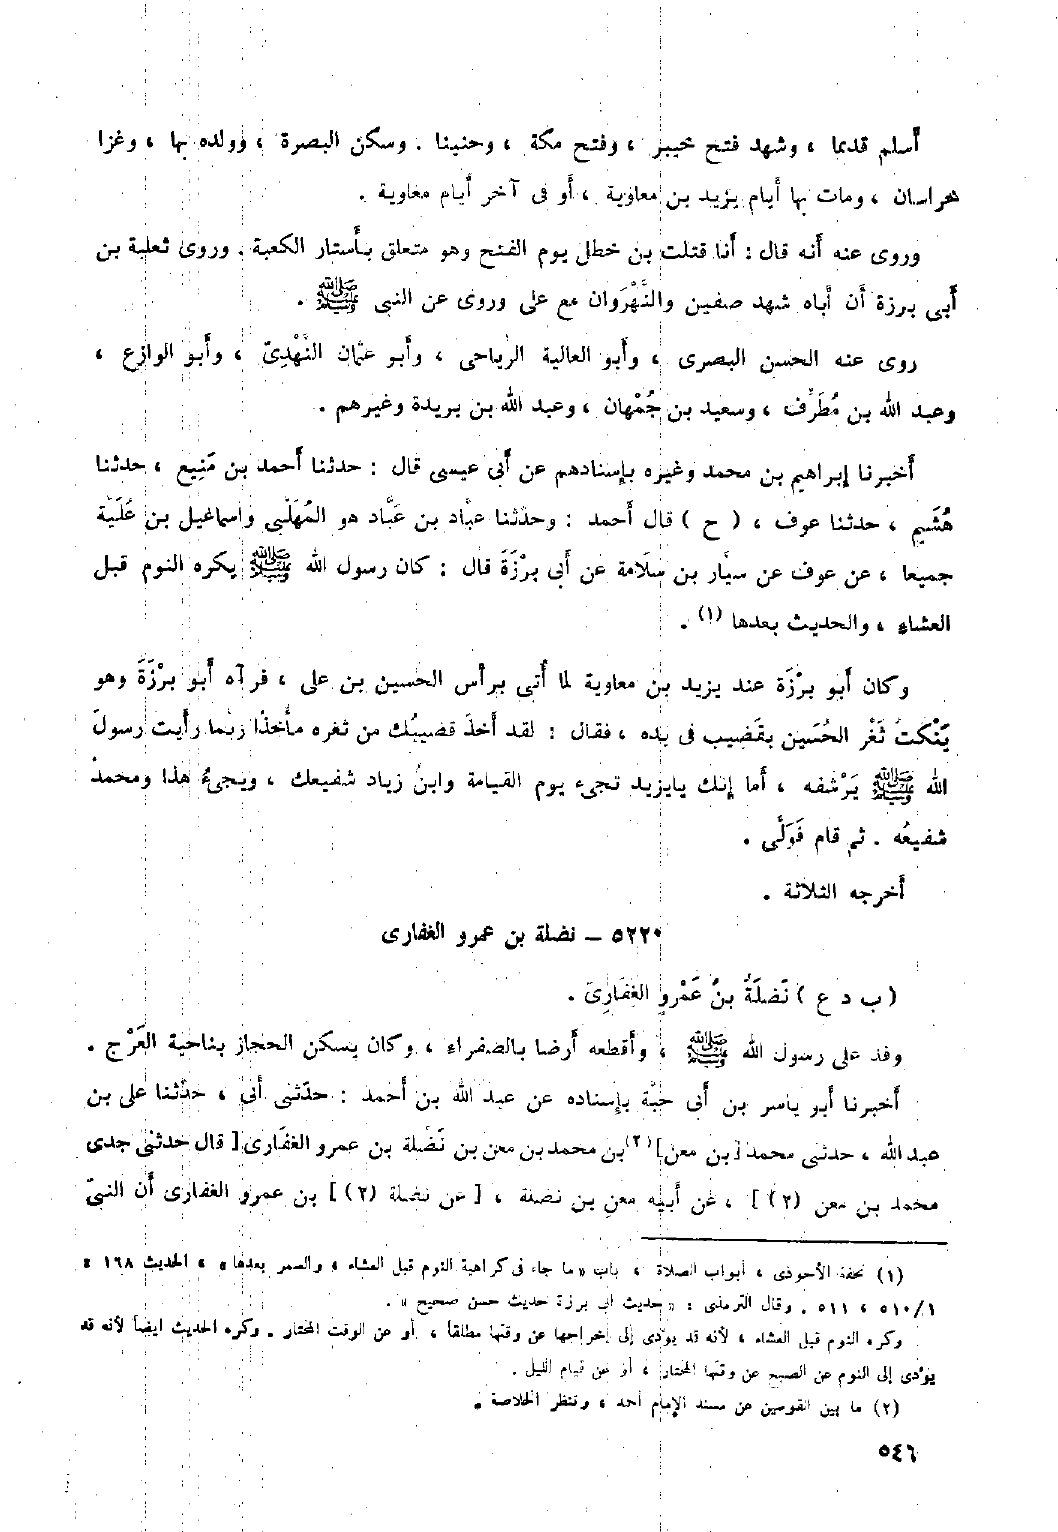 أَسلم قديما ، وشهد فتح خيبر ، وفتح مكة ، وحنينا . وسكن البصرة ، وولده بها ، وغزا
خراسان ، ومات بها أَيام يزيد بن معاوية ، أَو فى آخر أَيام معاوية .
وروى عنه أَنه قال : أَنا قتلت بن خطل يوم الفتح وهو متعلق بأَستار الكعبة . وروى ثعلبة بن
أَبى برزة أَن أَباه شهد صفين والنَّهْرَوان مع على وروى عن النبى ﷺ .
روى عنه الحسن البصرى ، وأَبو العالية الرِّياحى ، وأَبو عثمان النَّهْدِىّ ، وأَبو الوازع ،
وعبد الله بن مُطَرِّف ، وسعيد بن جُمْهان ، وعبد الله بن بريدة وغيرهم .
أَخبرنا إبراهيم بن محمد وغيره بإسنادهم عن أَبى عيسى قال : حدثنا أَحمد بن مَنِيع ، حدثنا
هُشَيم ، حدثنا عوف ، ( ح ) قال أَحمد : وحدّثنا عبَّاد بن عَبَّاد هو المُهَلَّبى وإسماعيل بن عُلَيَّة
جميعا ، عن عوف عن سيّار بن سلَامة عن أَبى برْزَةَ قال : كان رسول الله ﷺ يكره النوم قبل
العشاء ، والحديث بعدها (١) .
وكان أَبو برْزَة عند يزيد بن معاوية لما أُتى برأْس الحسين بن على ، فرآه أَبو برْزَةَ وهو
يَنْكتُ ثَغْر الحُسَين بقَضيب فى يده ، فقال : لقد أَخذَ قضيبُك من ثغره مأْخذًا ربّما رأَيت رسولَ
الله ﷺ يَرْشفه ، أَما إنك يايزيد تجىء يوم القيامة وابنُ زياد شفيعك ، ويجىءُ هذا ومحمدٌ
شفيعُه . ثم قام فَوَلَّى .
أَخرجه الثلاثة .
٥٢٢٠ – نضلة بن عمرو الغفارى
( ب د ع ) نَضلَةُ بنُ عَمْرو الغِفَارِىّ .
وفد على رسول الله ﷺ ، وأَقطعه أَرضا بالصفراء ، وكان يسكن الحجاز بناحية العَرْج .
أَخبرنا أَبو ياسر بن أَبى حَبَّة بإسناده عن عبد الله بن أَحمد : حدّثنى أَبى ، حدّثنا على بن
عبد الله ، حدثنى محمد [بن معن] (٢) بن محمد بن معن بن نَضْلة بن عمرو الغفَارى [ قال حدثنى جدى
محمد بن معن (٢) ] ، عن أَبيه معن بن نضلة ، [ عن نضلة (٢) ] بن عمرو الغفارى أَن النبىّ
(١) تحفة الأحوذى ، أبواب الصلاة ، باب « ما جاء فى كراهية النوم قبل العشاء ، والسمر بعدها » ، الحديث ١٦٨ :
٥١٠/١ ، ٥١١ . وقال الترمذى : « حديث أبى برزة حديث حسن صحيح » .
وكره النوم قبل العشاء ، لأنه قد يؤدى إلى إخراجها عن وقتها مطلقاً ، أو عن الوقت المختار . وكره الحديث أيضاً لأنه قد
يؤدى إلى النوم عن الصبح عن وقتها المختار ، أو عن قيام الليل .
(٢) ما بين القوسين عن مسند الإمام أحمد ، وتنظر الخلاصة .
٥٤٦